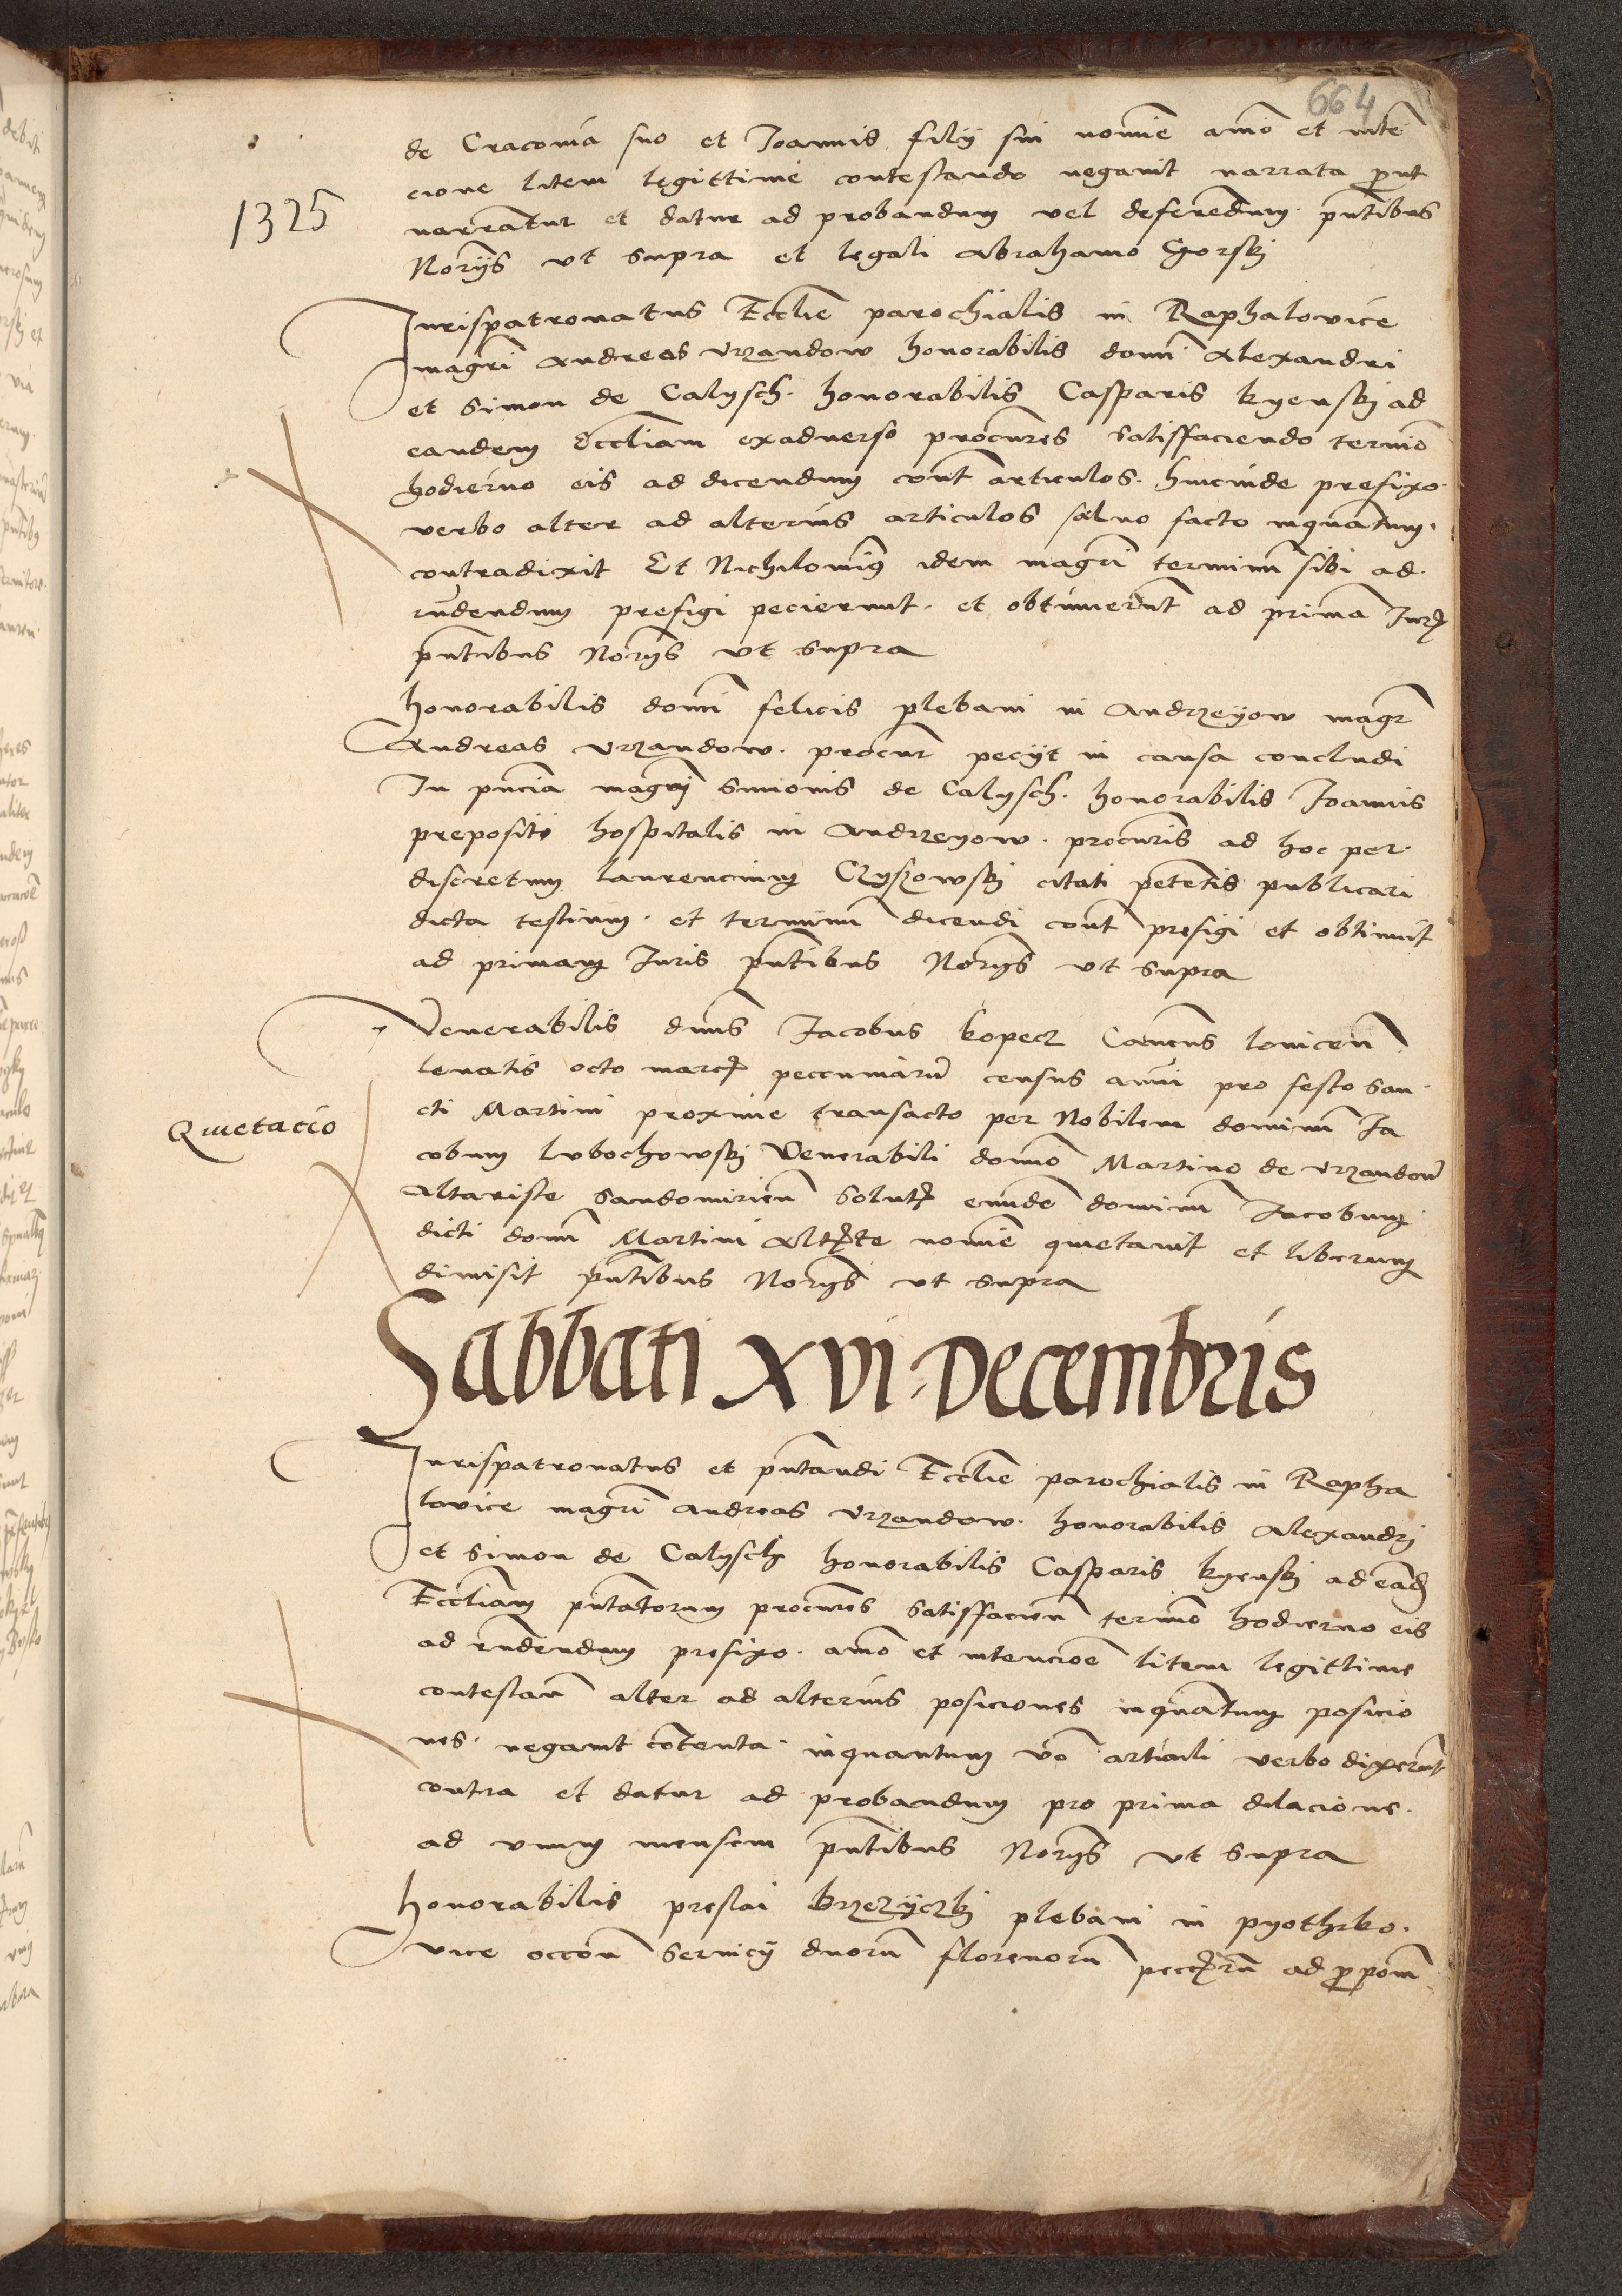 664
de Cracovia suo et Joannis filij sui noīe aīmo et inte
cione litem legittime contestando negavit narrata prout
1325
narrantur et datur ad probandum vel deferendum pn̄tibus
Norijs ut supra et legali Abrahamo Gorskj
Jurispatronatus Eccl̄ie parochialis in Raphalovice
magr̄i Andreas Vrzandow honorabilis domī Alexandri
et Simon de Calysch honorabilis Casparis Kyenskj ad
eandem Eccl̄iam exadverso procur̄es satisffaciendo termīo
hodierno eis ad dicendum cont̄ articulos hincinde prefixo
verbo alter ad alterius articulos salvo facto inquantum
contradixit Et Nichilomīg idem magr̄i terminū sibi ad
rn̄dendum prefigi pecierunt et obtinuerunt ad primā Jurꝭ
pn̄tibus Norijs ut supra
honorabilis domī felicis plebani in Andrzeyow magr̄
Andreas Vrzandow procur̄ pecijt in causa concludi
In pn̄cia magrj Simonis de Calysch honorabilis Joannis
prepositi hospitalis in Andrzeyow procur̄is ad hoc per
discretum laurencium Czyszowskj citati petentis publicari
dicta testium et terminū dicendi cont̄ prefigi et obtinuit
ad primam Juris pn̄tibus Norijs ut supra
Venerabilis dn̄us Jacobus Kopecz Can̄cus lovicen̄
levatis octo marcꝭ peccuniarū census annui pro festo san
Quietacio
cti Martini proxime transacto per Nobilem dominū Ja
cobum Lubochowskj Venerabili domīo Martino de Vrzandow
Altariste Sandomirien̄ solutꝭ eundē dominū Jacobum
dicti domī Martini Altꝭte noīe quietavit et liberum
dimisit pn̄tibus Norijs ut supra
Sabbati XVI Decembris
Jurispatronatus et pn̄tandi Eccl̄ie parochialis in Rapha
lovice magr̄i Andreas Vrzandow honorabilis Alexandrj
et Simon de Calysch honorabilis Casparis Kyenskj ad eand̄
Eccl̄iam pn̄tatorum procur̄es satisffacien̄ termīo hodierno eis
ad rn̄dendum prefixo aīmo et intencioē litem legittime
contestan̄ alter ad alterius posiciones inquantum posicio
nes negavit contenta inquantum vō articuli verbo dixerunt
contra et datur ad probandum pro prima dilacione
ad unum mensem pn̄tibus Norijs ut supra
honorabilis preslai Brzezyczkj plebani in pyothrko
vice occōn̄ servicij duorū florenorū pecꝭrū ad proponn̄